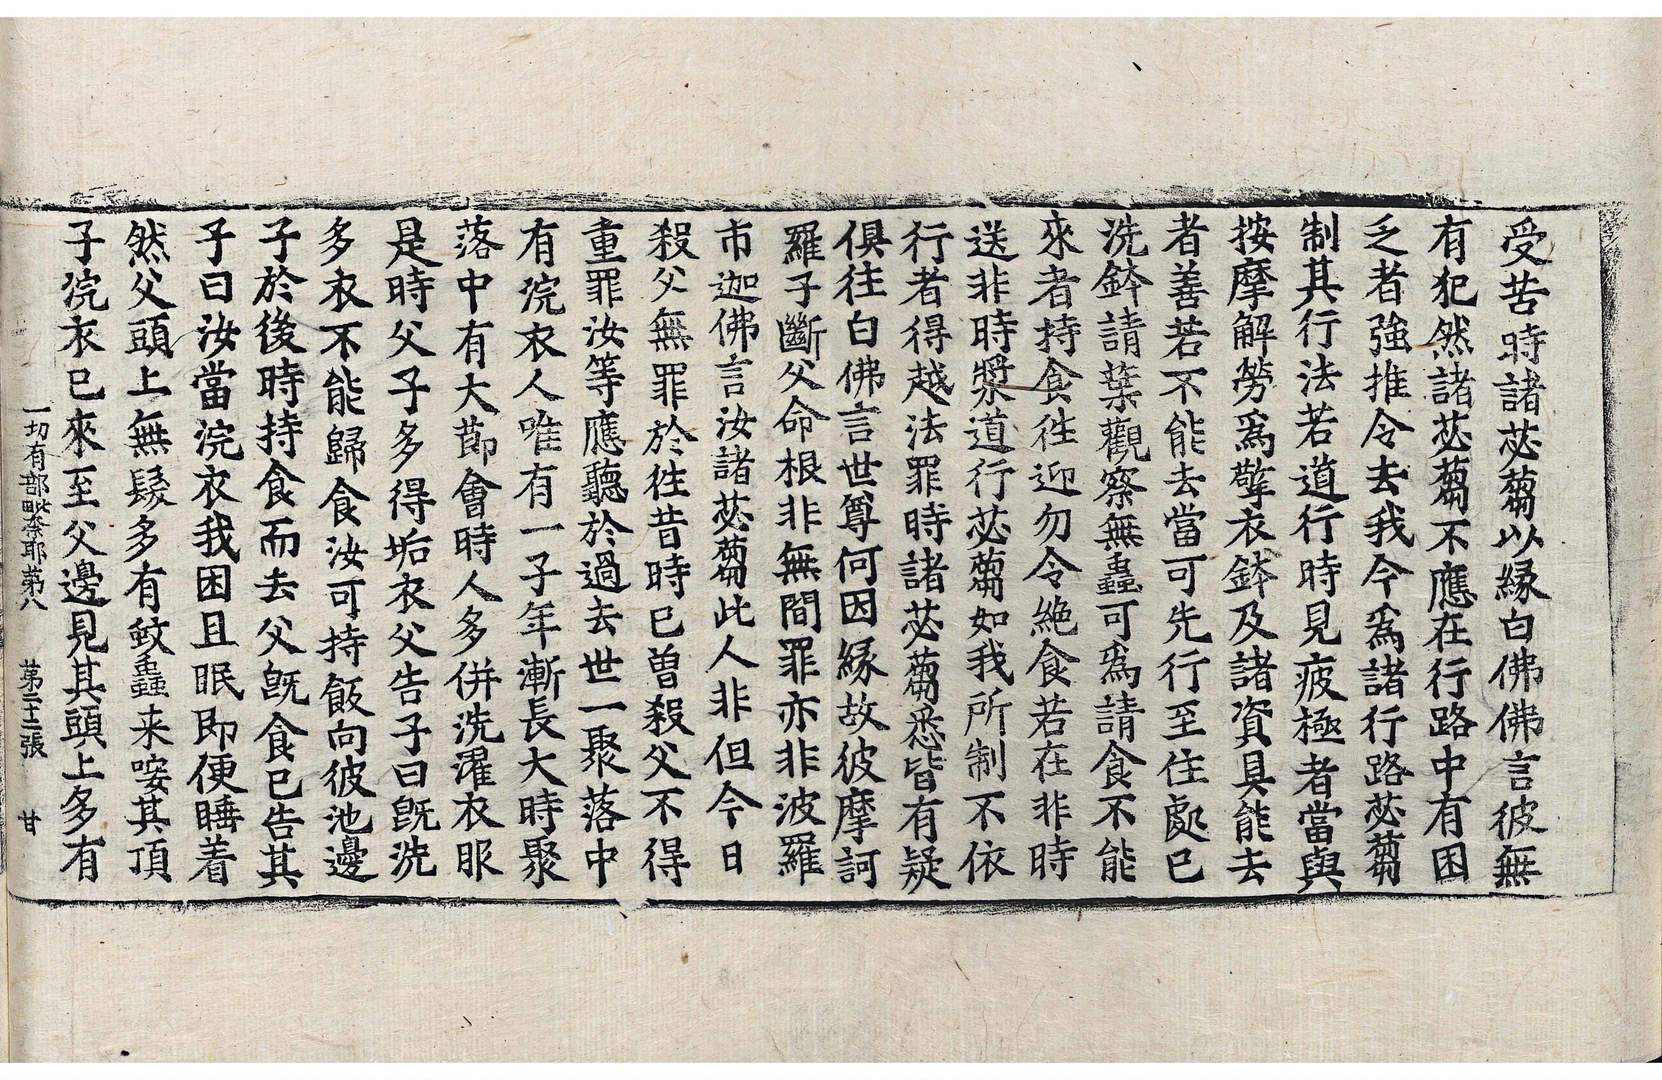 受苦時諸苾蒭以緣白佛佛言彼無
有犯然諸苾蒭不應在行路中有困
乏者強推令去我今爲諸行路苾蒭
制其行法若道行時見疲極者當與
按摩解勞爲擎衣鉢及諸資具能去
者善若不能去當可先行至住處已
洗鉢請葉觀察無蟲可爲請食不能
來者持食往迎勿令絶食若在非時
送非時漿道行苾蒭如我所制不依
行者得越法罪時諸苾蒭悉皆有疑
俱往白佛言世尊何因緣故彼摩訶
羅子斷父命根非無間罪亦非波羅
市迦佛言汝諸苾蒭此人非但今日
殺父無罪於往昔時已曾殺父不得
重罪汝等應聽於過去世一聚落中
有浣衣人唯有一子年漸長大時聚
落中有大節會時人多併洗濯衣服
是時父子多得垢衣父告子曰旣洗
多衣不能歸食汝可持飯向彼池邊
子於後時持食而去父旣食已告其
子曰汝當浣衣我困且眠即便睡着
然父頭上無髮多有蚊蟲来唼其頂
子浣衣已來至父邊見其頭上多有
一切有部毗奈耶苐八　苐二十二張　甘